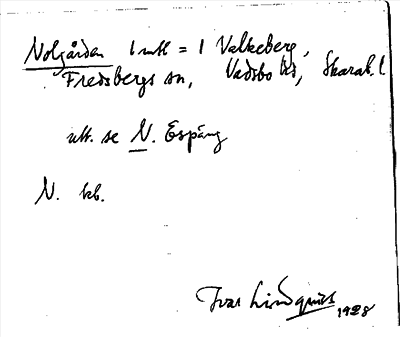 Nolgården 1 mtl = 1 Valkeberg,
Fredsbergs sn, Vadsbo hd, Skarab. l
utt. se N. Espäng
N. kb.
Ivar Lindquist
1928